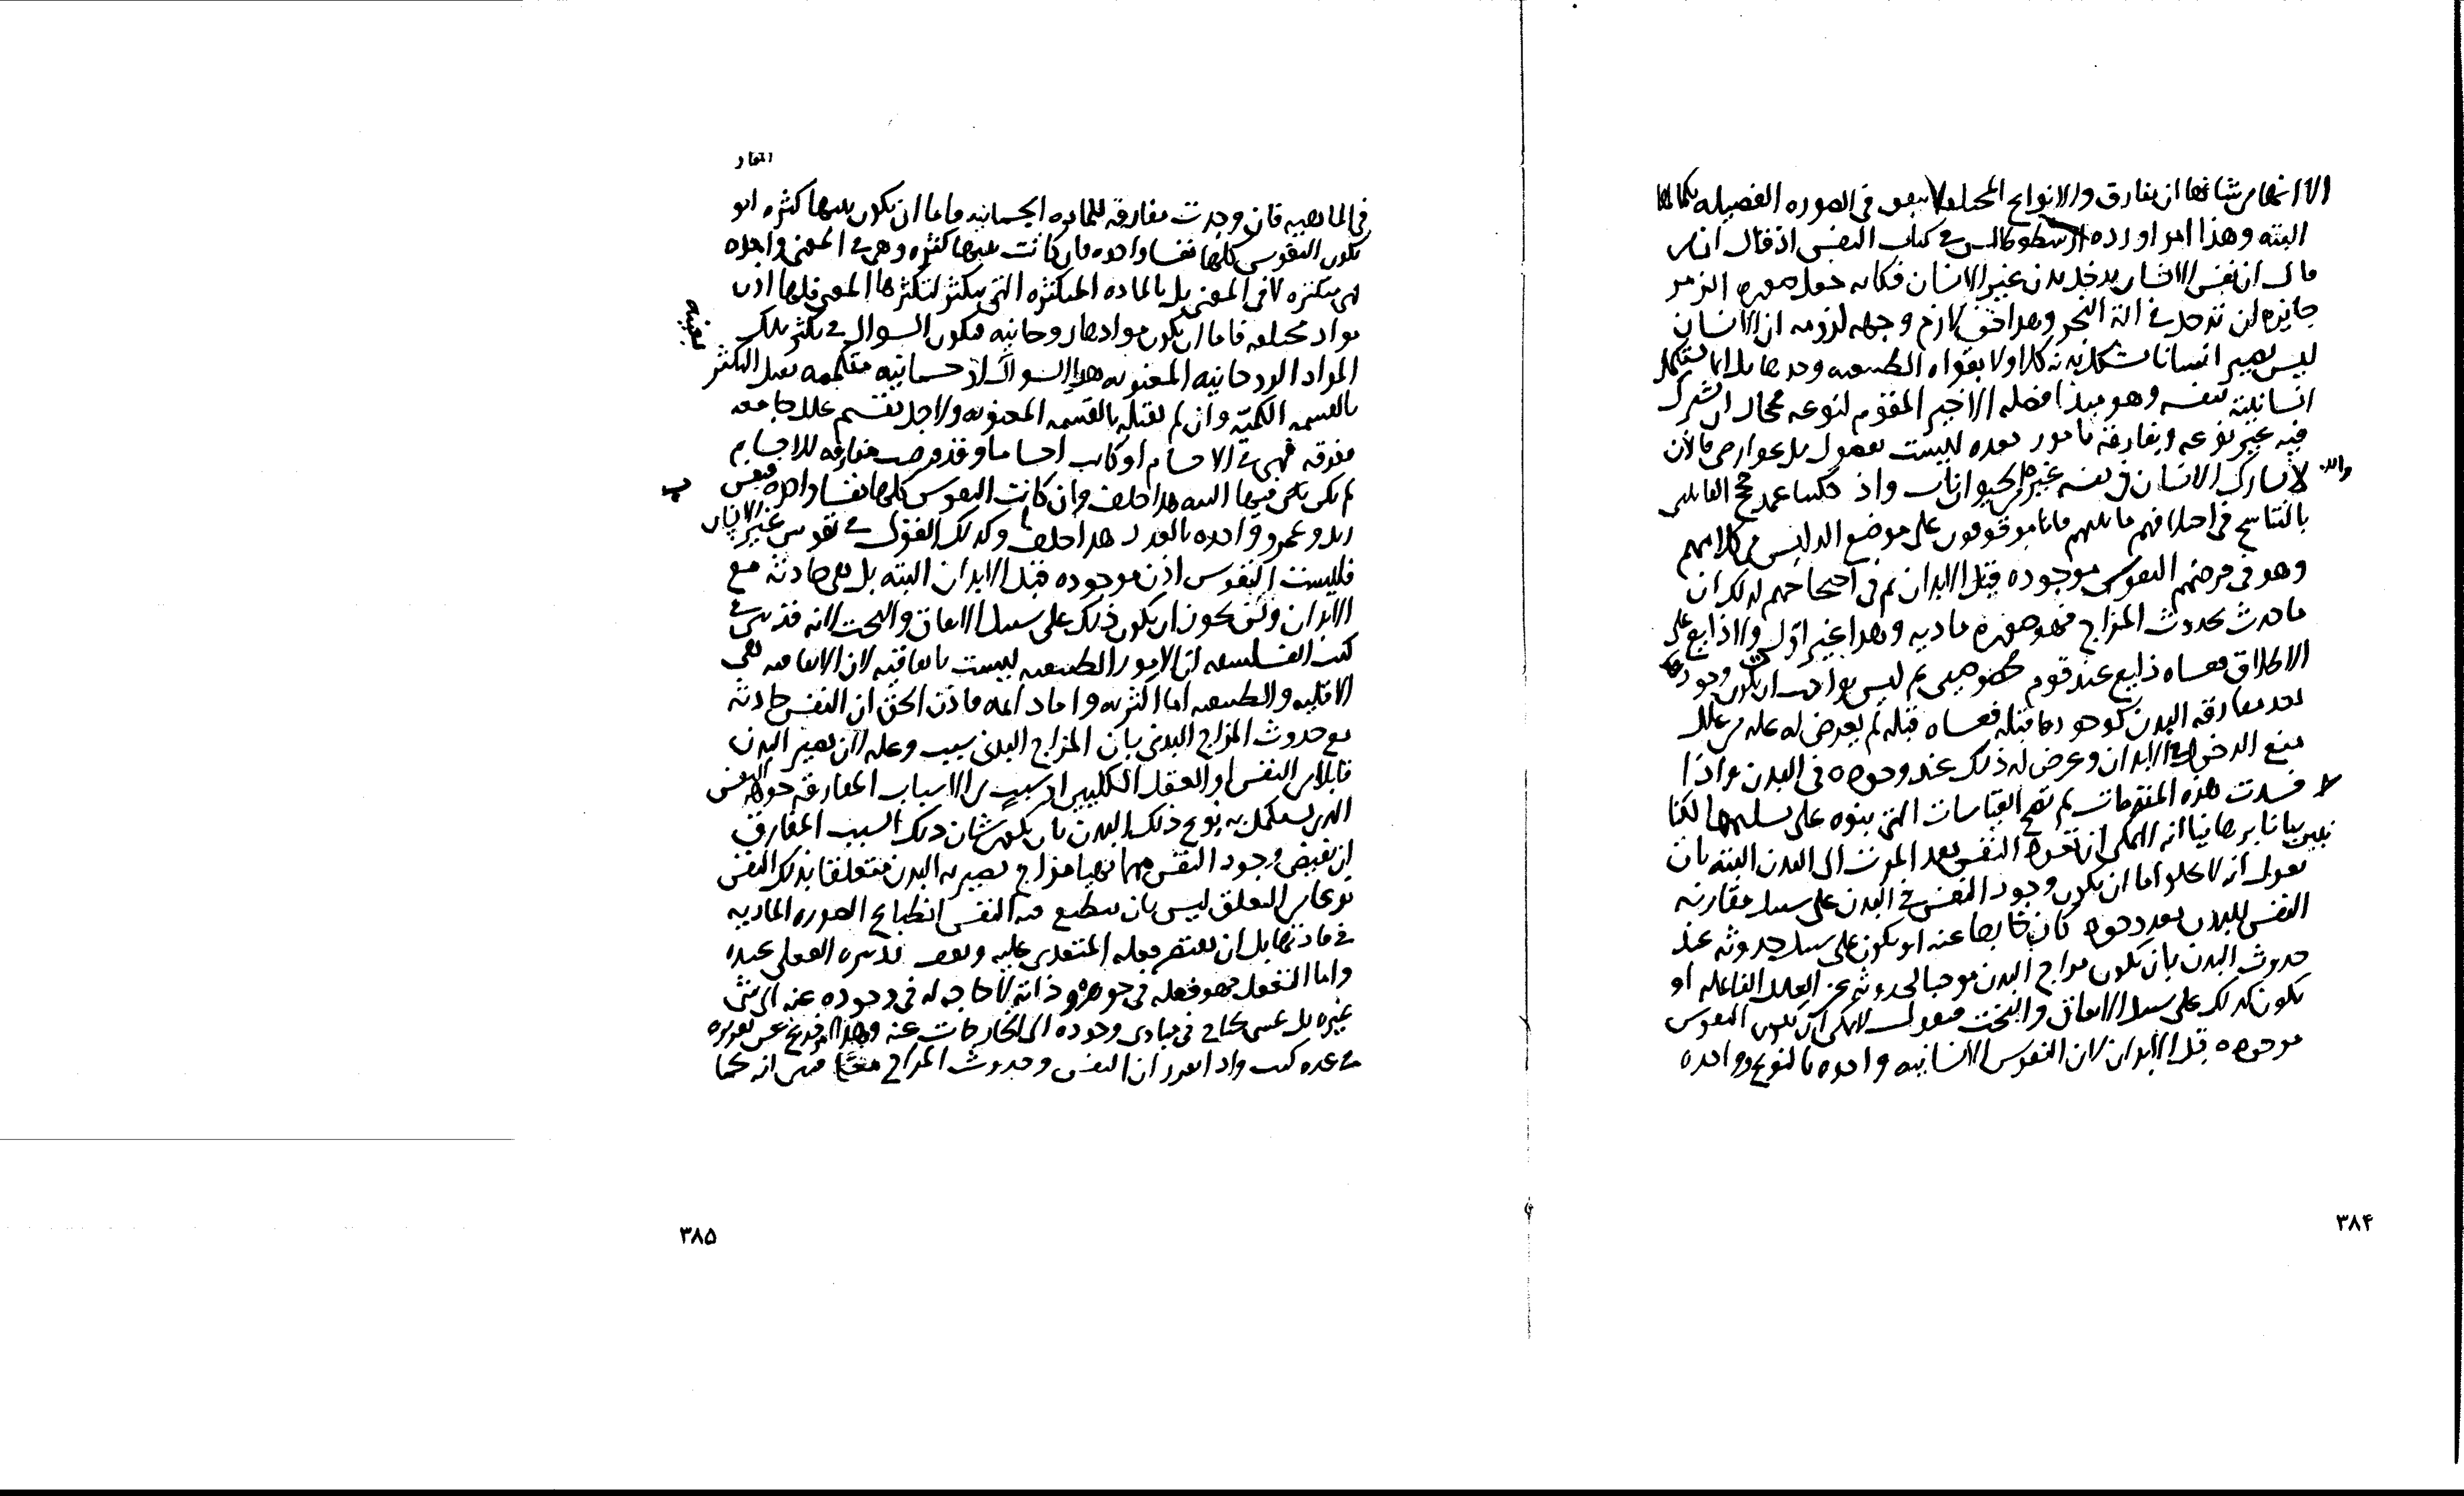 الا انها من شانها ان يفارق والانواع المختلفه لا يتفق في الصوره الفصليه بكمالها
البته وهذا امر اورده ارسطوطاليس في كتاب النفس اذ قال ان من
قال ان نفس الانسان يدخل بدن غير الانسان فكانه جعل صوره الزمر
جايزه ان تدخل في الة النجر وهذا حق لازم وجهه لزومه ان الانسان
ليس يصير انسانا بشكل بدنه كلا ولا بقواه الطبيعيه وحدها بل انما يستكمل
انسانيته بنفسه وهو مبدا فصله الاخير المقوم لنوعه فمحال ان يشرك
فيه غير نوعه ويفارقه بامور بعده ليست بفصول بل عوارض فاذن
لا يشارك الانسان في نفسه غيره من الحيوانات واذ حكينا عمد حجج القايلين
بالتناسخ في اصلافهم ما بينهم فانا موقوفون على موضع التدليس من كلامهم
وهو في فرضهم النفوس موجوده قبل الابدان ثم في احتجاجهم لذلك ان
ما حدث بحدوث المزاج فهو صوره ماديه وهذا غير اولى ولا ذايع على
الاطلاق فعساه ذايع عند قوم مخصوصين ثم ليس بواجب ان يكون وجودها
بعد مفارقه البدن كوجودها قبله فعساه قبله لم يعرض له عله من علل
منع الدخول في الابدان وعرض له ذلك عند وجوده في البدن واذا
فسدت هذه المقدمات لم تصح القياسات التي بنوه على تسليمها لكنا
نبين بيانا برهانيا انه لا يمكن ان تعود النفس بعد الموت الى البدن البته بان
نقول انه لا يخلو اما ان يكون وجود النفس في البدن على سبيل مقارنه
النفس للبدن بعد وجود كان خاصا عنه او يكون على سبيل حدوثه عند
حدوث البدن بان يكون مزاج البدن موجبا لحدوثه عن العلل الفاعله او
يكون كذلك على سبيل الاتفاق والبخت فنقول لا يمكن ان يكون النفوس
موجوده قبل الابدان لان النفوس الانسانيه واحده بالنوع وواحده
٣٨۴
في الماهيه فان وجدت مفارقه للماده الجسمانيه فاما ان يكون بينها كثره او
يكون النفوس كلها نفسا واحده فان كانت بينها كثره وهي في المعنى واحده
فهي متكثره لا في المعنى بل بالماده المتكثره التي يتكثر لتكثرها المعنى فلها اذن
مواد مختلفه فاما ان يكون موادها روحانيه فيكون السوال في تكثر تلك
المواد الروحانيه المعنويه هذا السوال او جسمانيه متكممه تقبل التكثر
بالقسمه الكميه وان لم تقبله بالقسمه المعنويه ولاجل تقسم علل جامعه
مفرقه فهي في الاجسام او كانت اجساما وقد فرضت مفارقه للاجسام
لم تكن تكثر فيها البته هذا خلف وان كانت النفوس كلها نفسا واحده فنفس
زيد وعمرو واحده بالعدد هذا خلف وكذلك القول في نفوس غير الانسان
فليست النفوس اذن موجوده قبل الابدان البته بل هي حادثه مع
الابدان ولن يجوز ان يكون ذلك على سبيل الاتفاق والبخت لانه قد تبين في
كتب الفلسفه ان الامور الطبيعيه ليست باتفاقيه لان الاتفاقيه هي
الاقليه والطبيعيه اما اكثريه واما دايمه فاذن الحق ان النفس حادثه
مع حدوث المزاج البدني بان المزاج البدني سبب وعله لان يصير البدن
قابلا من النفس او العقل الكليين او سبب من الاسباب المفارقه جوهر النفس
الذي يستكمل به نوع ذلك البدن بان يكون شان ذلك السبب المفارق
ان يفيض وجود النفس مهما تهيا مزاج يصير به البدن متعلقا بذلك النفس
نوعا من التعلق ليس بان ينطبع فيه النفس انطباع الصوره الماديه
في مادتها بل ان يقتصر فعله المتعدى عليه ويقصر تدبيره العملي عنده
واما التعقل فهو فعله في جوهره وذاته لا حاجه له في وجوده عنه الى شى
غيره بل عسى يحتاج في مبادى وجوده الى الخارجات عنه وهذا امر فرغ عن تقريره
في عده كتب واذا تقرر ان النفس وحدوث المزاج معا فبين انه كما
٣٨۵